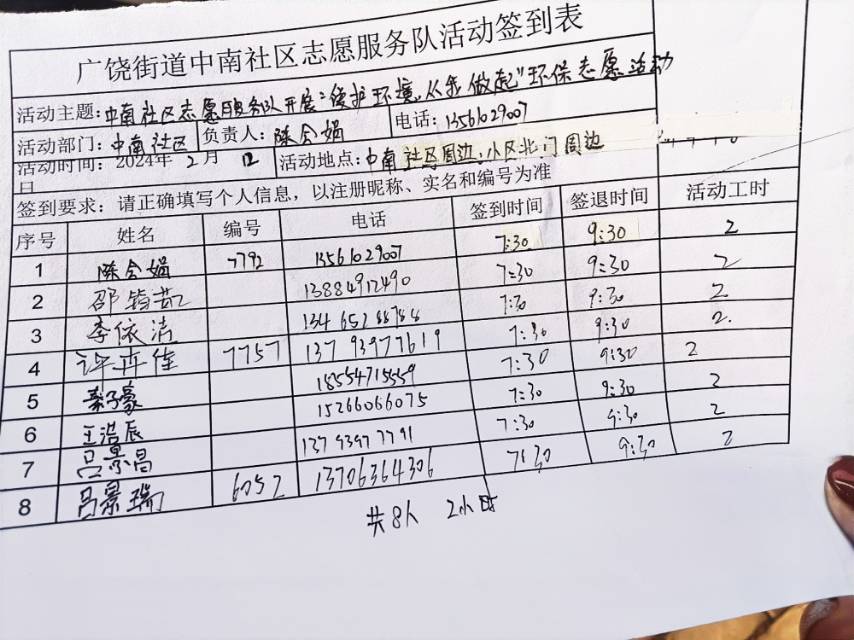 广饶街道中南社区志愿服务队活动签到表
活动主题: 中南社区志愿服务队开展"爱护环境,从我做起"环保志愿活动
活动部门: 中南社区 负责人: 陈会娟 电话: 13561029007
活动时间: 2024年2月12日 活动地点: 中南社区周边,小区北门周边
签到要求: 请正确填写个人信息,以注册昵称、实名和编号为准
序号 姓名 编号 电话 签到时间 签退时间 活动工时
1 陈会娟 7792 13561029007 7:30 9:30 2
2 邵 13884912490 7:30 9:30 2
3 李依洁 7:30 9:30 2
4 许卉佳 7757 13793977619 7:30 9:30 2.
5 秦子豪 18554715559 7:30 9:30 2
6 王浩辰 15266066075 7:30 9:30 2
7 吕景昌 13793977791 7:30 9:30 2
8 吕景瑞 6052 13706364306 7:30 9:30 2
共8人 2小时